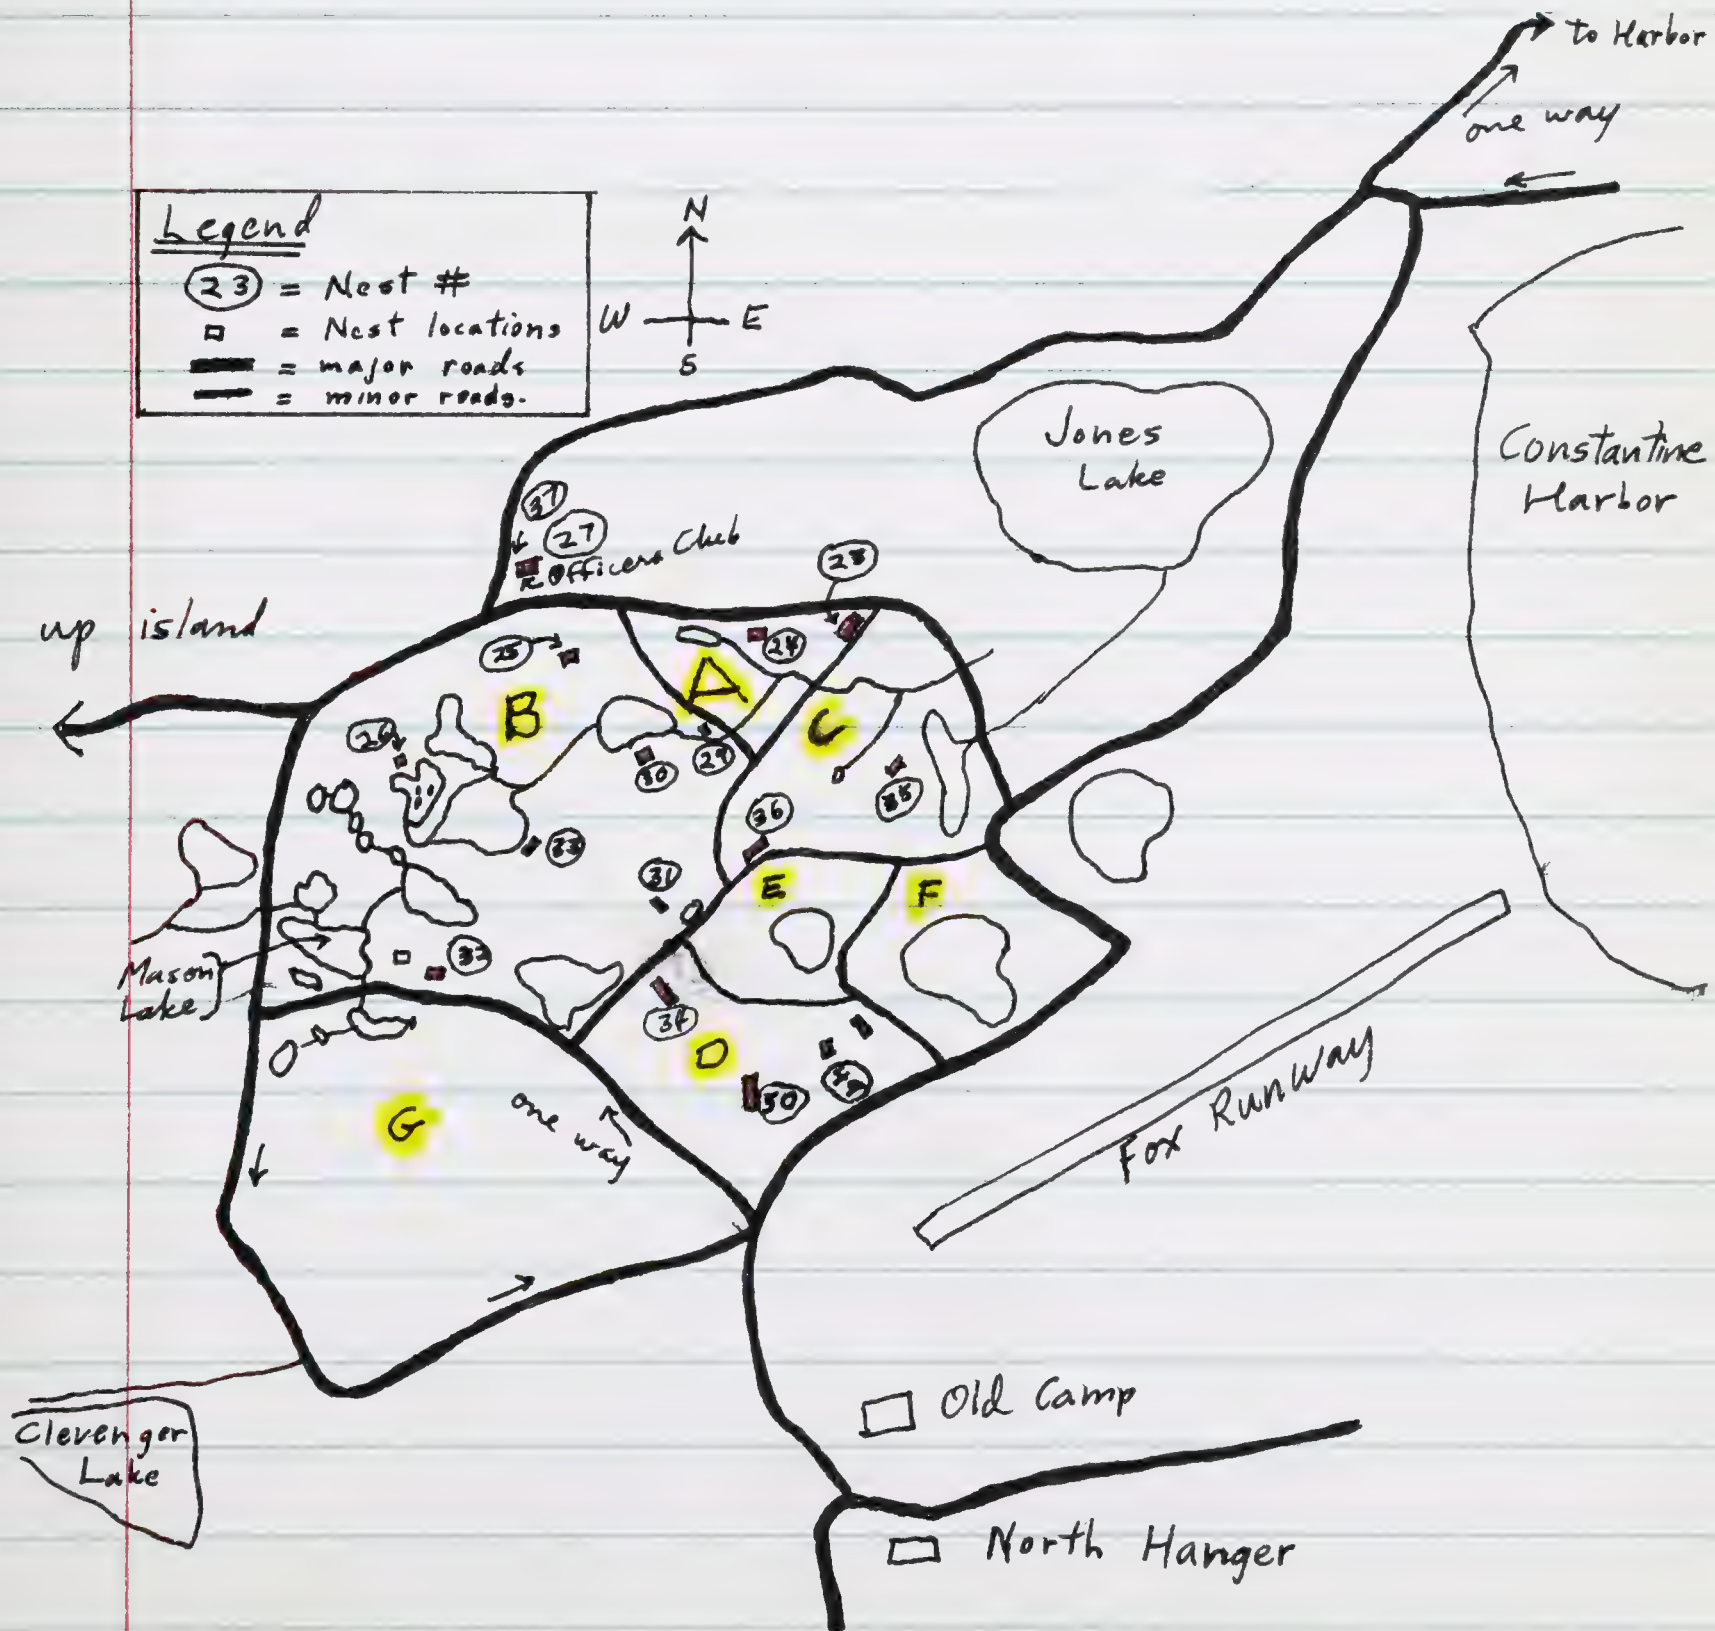 to Harbor
one way
Legend
23 = Nest #
= Nest locations
= major roads
= minor roads.
N
W E
S
Jones
Lake
Constantine
Harbor
37
27
Officers Club
28
up island
25
24
A
B
C
26
30
29
35
36
33
31
E
F
32
Mason
Lake
34
D
50
G
one way
Fox Runway
Clevenger
Lake
Old Camp
North Hanger